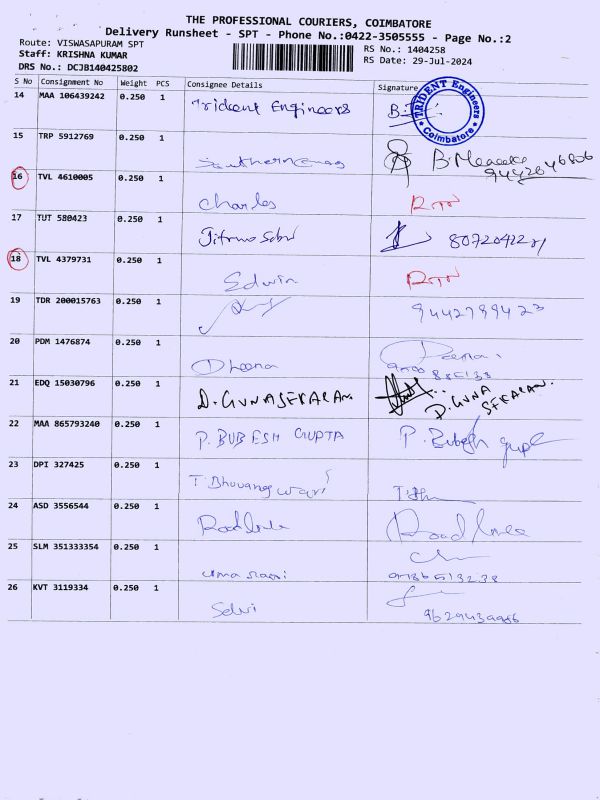 THE PROFESSIONAL COURIERS, COIMBATORE
Delivery Runsheet - SPT - Phone No.:0422-3505555 - Page No.:2
Route: VISWASAPURAM SPT
Staff: KRISHNA KUMAR
DRS No.: DCJB140425802
RS No.: 1404258
RS Date: 29-Jul-2024
S No Consignment No Weight PCS Consignee Details Signature
14 MAA 106439242 0.250 1 Trident Engineers
TRIDENT Engineers Coimbatore
15 TRP 5912769 0.250 1
16 TVL 4610005 0.250 1 Charles RTN
17 TUT 580423 0.250 1
18 TVL 4379731 0.250 1 Edwin RTN
19 TDR 200015763 0.250 1 9442799423
20 PDM 1476874 0.250 1 Dheena
21 EDQ 15030796 0.250 1 D. GUNASEKARAN D. GUNA
SEKARAN.
22 MAA 865793240 0.250 1 P. BUBESH GUPTA P. Bubesh gupta
23 DPI 327425 0.250 1 T. Bhuvaneswari
24 ASD 3556544 0.250 1
25 SLM 351333354 0.250 1 Uma rani
26 KVT 3119334 0.250 1 Selvi